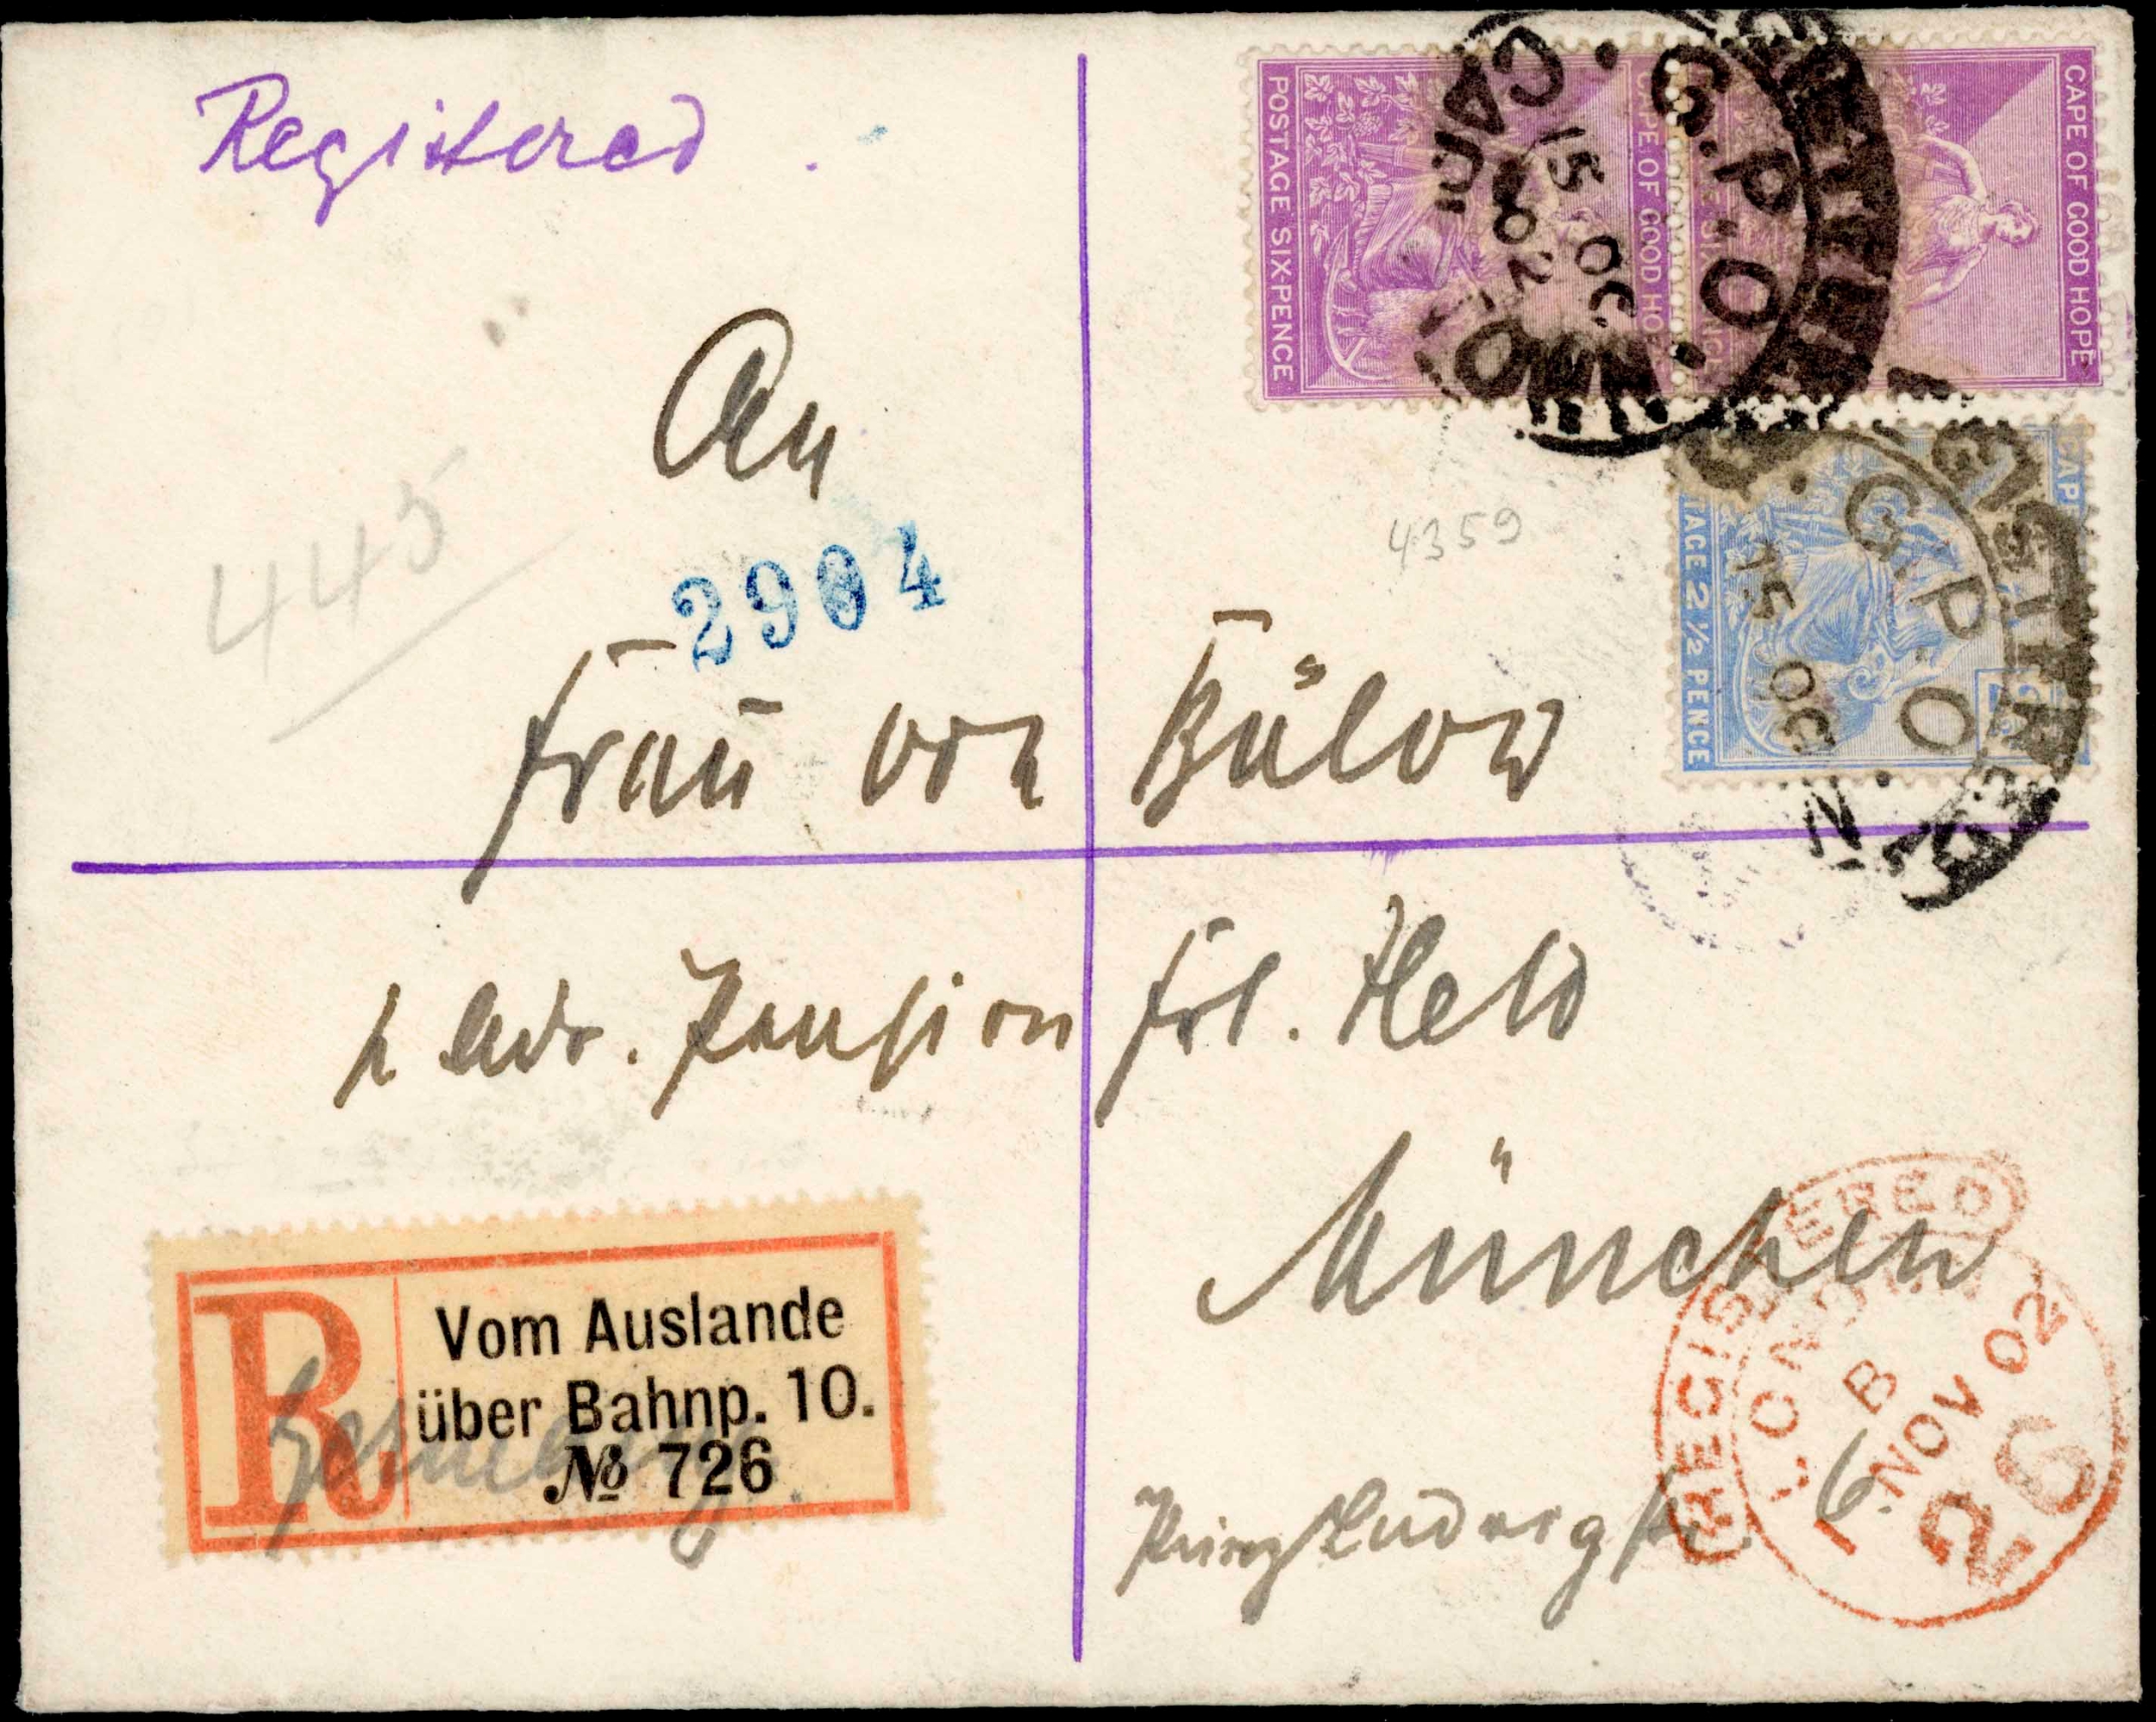 Registered.
CAPE OF GOOD HOPE
POSTAGE SIXPENCE
CAPE OF GOOD HOPE
G.P.O.
15 OC
02
An
2904
445
4359
CAP
TAGE 2½ PENCE
G.P.O.
15 OC
Frau von Bülow
p Adr. Pension Frl. Held
München
Prinz Ludwigstr. 6.
R
Vom Auslande
über Bahnp. 10.
№ 726
Germany
REGISTERED
LONDON
B
1 NOV 02
26